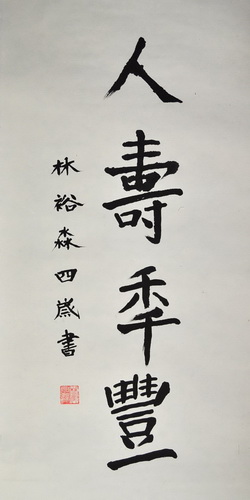 人壽年豐
林裕淼四歲書